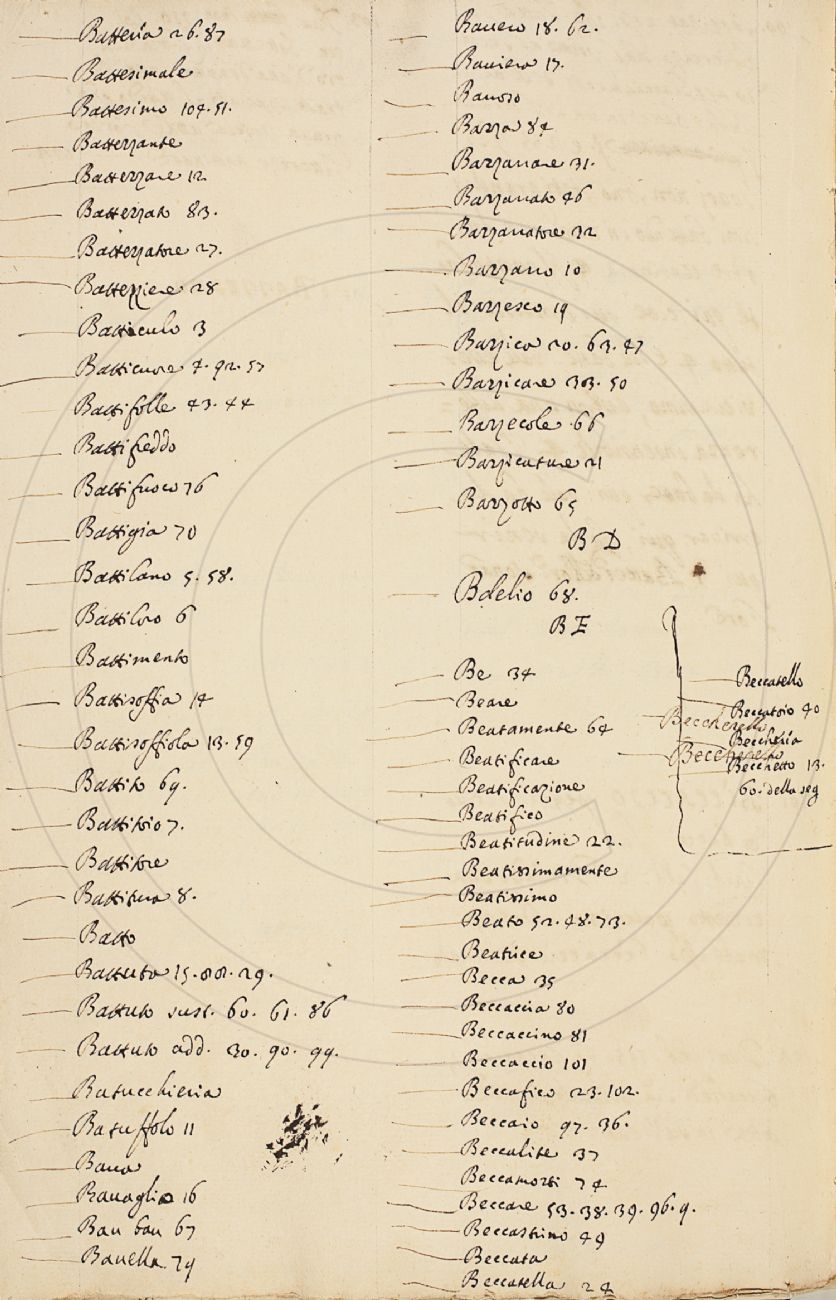 Batteria 26. 87
Battesimale
Battesimo 104. 51.
Battezzante
Battezzare 12
Battezzato 83.
Battezzatore 27.
Battezziere 28
Batticulo 3
Batticuore 4. 92. 57
Battifolle 43. 44
Battifreddo
Battifuoco 76
Battigia 70
Battilano 5. 58.
Battiloro 6
Battimento
Battisoffia 14
Battisoffiola 13. 59
Battito 69.
Battitoio 7.
Battitore
Battitura 8.
Batto
Battuta 15. 88. 29.
Battuto sust. 60. 61. 86
Battuto add. 30. 90. 99.
Batucchieria
Batuffolo 11
Baua
Bauaglio 16
Bau bau 67
Bauella 79
Bauero 18. 62.
Bauiera 17.
Bauoso
Bazza 84
Bazzanare 31.
Bazzanato 46
Bazzanatore 32
Bazzano 10
Bazzesco 19
Bazzica 20. 63. 47
Bazzicare 303. 50
Bazzecole 66
Bazzicature 21
Bazzotto 65
B D
Bdelio 68.
B E
Be 34
Beare
Beatamente 64
Beatificare
Beatificazione
Beatifico
Beatitudine 22.
Beatissimamente
Beatissimo
Beato 52. 48. 73.
Beatrice
Becca 35
Beccaccia 80
Beccaccino 81
Beccaccio 101
Beccafico 23. 102.
Beccaio 97. 36.
Beccalite 37
Beccamorti 74
Beccare 53. 38. 39. 96. 9.
Beccastrino 49
Beccata
Beccatella 24
Beccatello
Beccatoio 40
Beccherello
Beccheria
Becchetto
Becchetto 13.
60. della seg